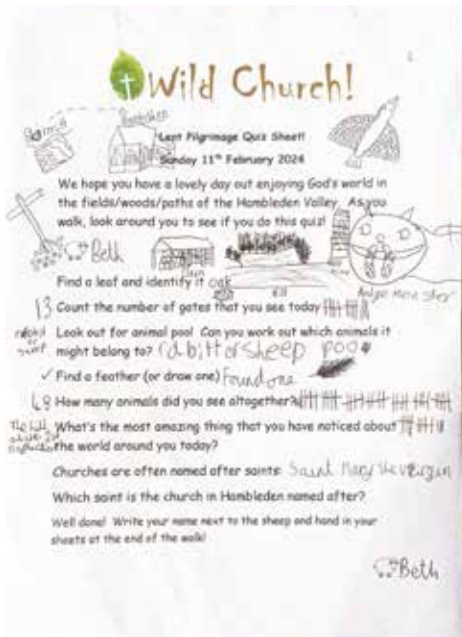 Wild Church!
Lent Pilgrimage Quiz Sheet!
Sunday 11th February 2024
We hope you have a lovely day out enjoying God's world in
the fields/woods/paths of the Hambleden Valley. As you
walk, look around you to see if you do this quiz!
Beth
Find a leaf and identify it oak
13 Count the number of gates that you see today
Look out for animal poo! Can you work out which animals it
might belong to? rabbit or sheep poo
✓ Find a feather (or draw one) Found one
68 How many animals did you see altogether?
What's the most amazing thing that you have noticed about
the world around you today?
Churches are often named after saints. Saint Mary the vergin
Which saint is the church in Hambleden named after?
Well done! Write your name next to the sheep and hand in your
sheets at the end of the walk!
Beth